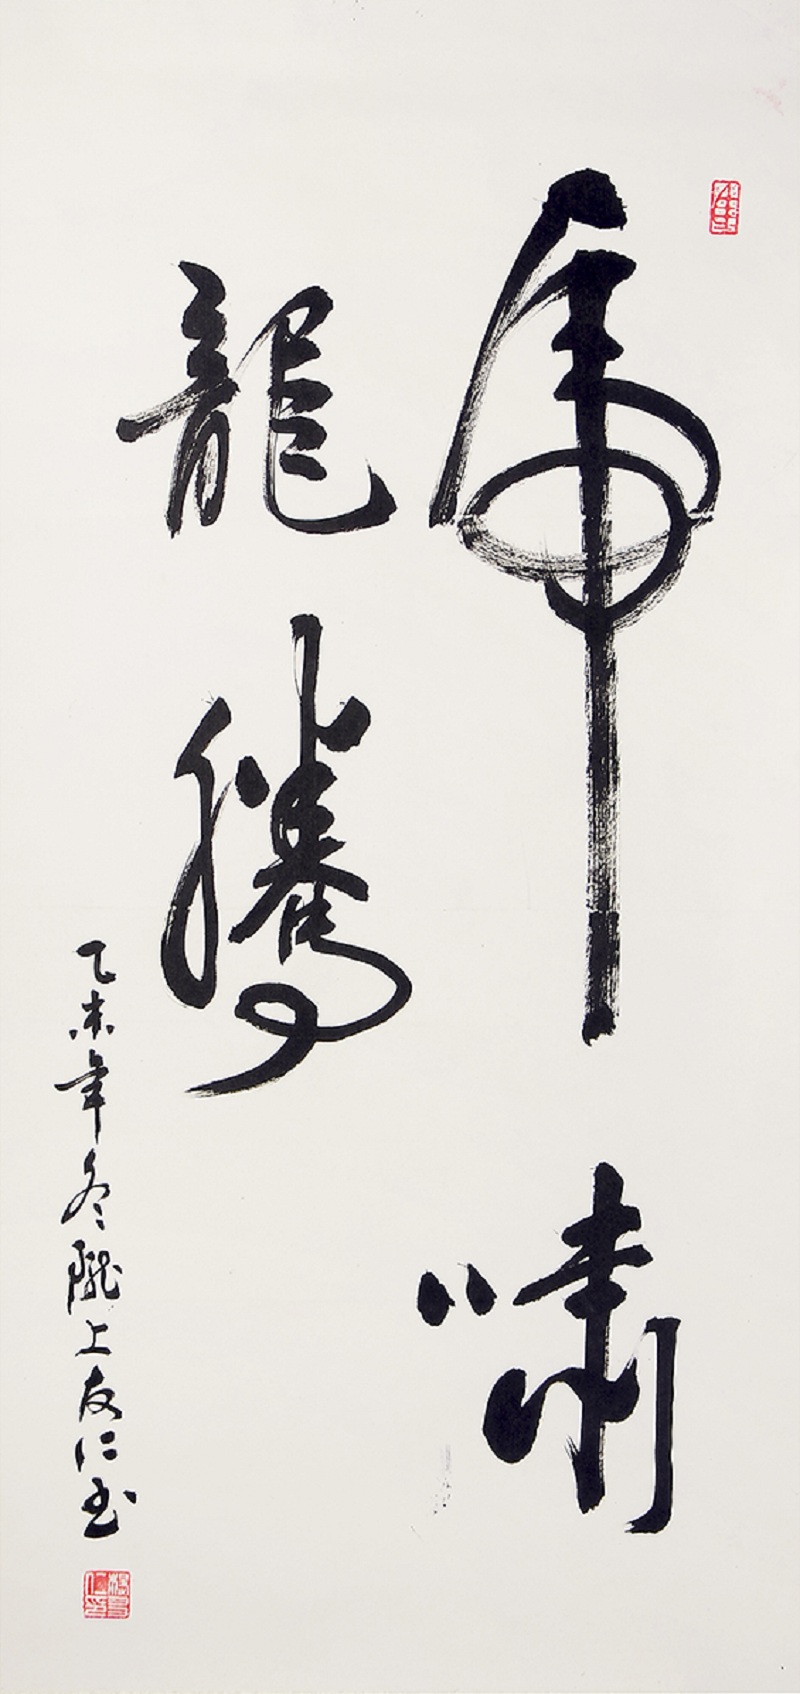 虎啸
龍騰
乙未年冬隴上友仁书